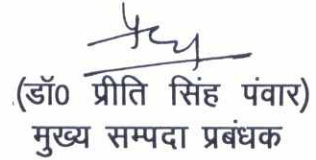 (डॉ0 प्रीति सिंह पंवार)
मुख्य सम्पदा प्रबंधक